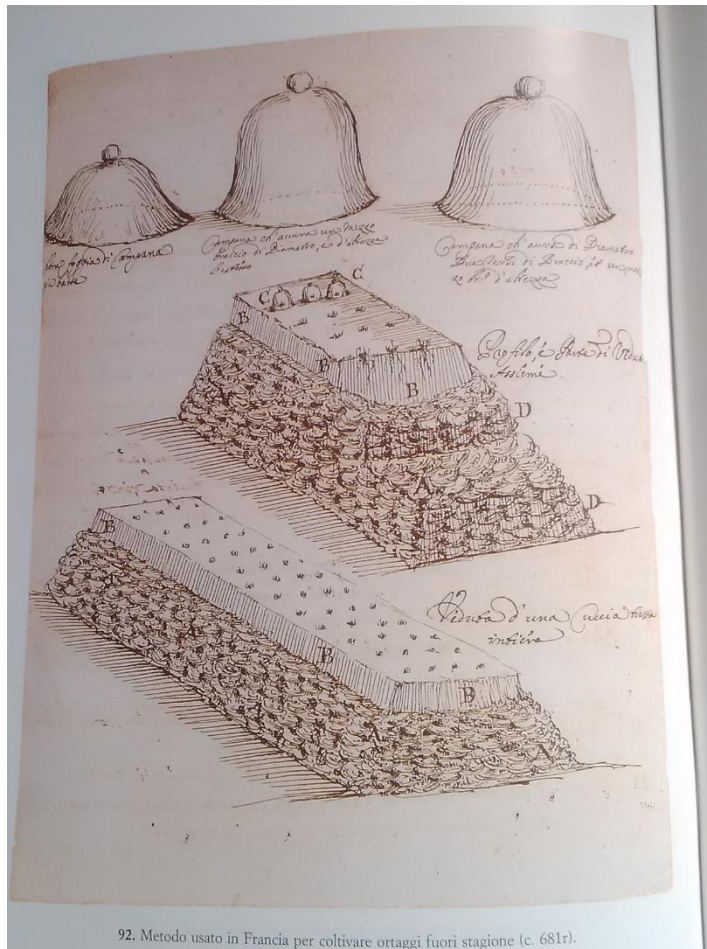 di Campana
Campana ch'avera un mezzo
braccio di Diametro, e d'altezza
Campana ch'aura di Diametro
Due terzi di Braccio, e un mez
zo br.º d'altezza
C
C
B
B
B
Profilo, è Parte di Veduta
Assieme.
A
D
A
D
B
Veduta d'una Cuccia tutta
intiera
A
A
B
B
A
A
A
92. Metodo usato in Francia per coltivare ortaggi fuori stagione (c. 681r).